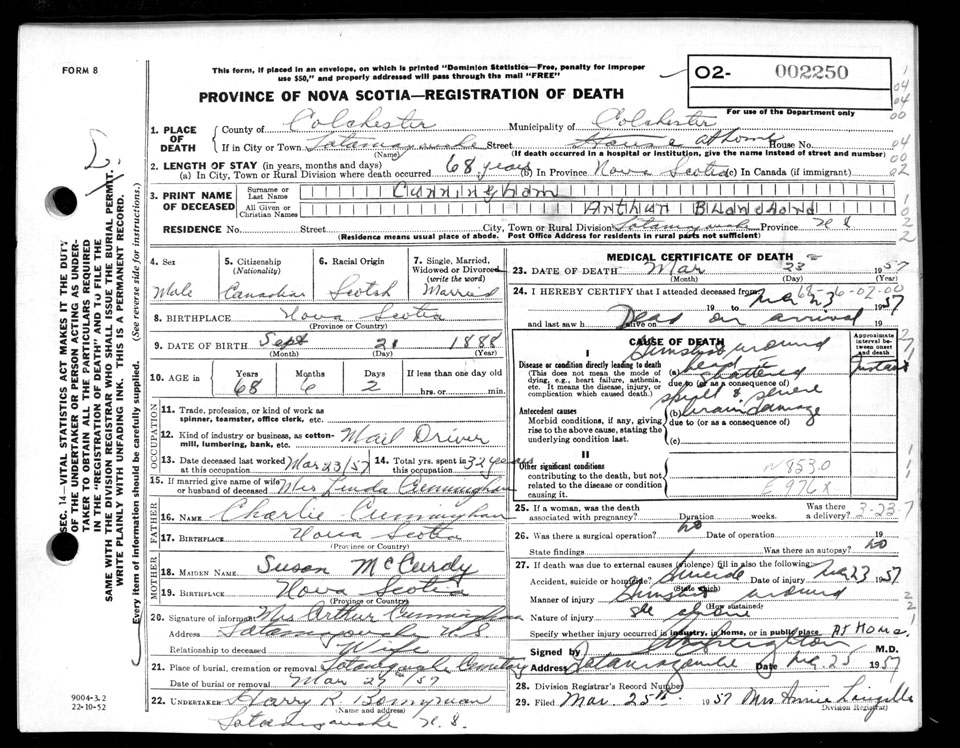 FORM 8
This form, if placed in an envelope, on which is printed "Dominion Statistics—Free, penalty for improper
use $50," and properly addressed will pass through the mail "FREE"
O2- 002250
PROVINCE OF NOVA SCOTIA—REGISTRATION OF DEATH
For use of the Department only
1. PLACE OF DEATH
County of Colchester Municipality of Colchester
If in City or Town Tatamagouche Street House at home House No.
(Name) (If death occurred in a hospital or institution, give the name instead of street and number)
2. LENGTH OF STAY (in years, months and days)
(a) In City, Town or Rural Division where death occurred 68 years (b) In Province Nova Scotia (c) In Canada (if immigrant)
3. PRINT NAME OF DECEASED
Surname or Last Name Cunningham
All Given or Christian Names Arthur Blanchard
RESIDENCE No. Street City, Town or Rural Division Province N S
(Residence means usual place of abode. Post Office Address for residents in rural parts not sufficient)
4. Sex Male
5. Citizenship (Nationality) Canadian
6. Racial Origin Scotch
7. Single, Married, Widowed or Divorced (write the word) Married
8. BIRTHPLACE Nova Scotia
(Province or Country)
9. DATE OF BIRTH Sept 21 1888
(Month) (Day) (Year)
10. AGE in Years Months Days If less than one day old
68 6 2 hrs. or min.
OCCUPATION
11. Trade, profession, or kind of work as
spinner, teamster, office clerk, etc.
12. Kind of industry or business, as cotton-
mill, lumbering, bank, etc. Mail Driver
13. Date deceased last worked at this occupation Mar 23/57
14. Total yrs. spent in this occupation 32 years
15. If married give name of wife
or husband of deceased Mrs Cunningham
FATHER
16. NAME Charlie Cunningham
17. BIRTHPLACE Nova Scotia
(Province or Country)
MOTHER
18. MAIDEN NAME Susan McCurdy
19. BIRTHPLACE Nova Scotia
(Province or Country)
20. Signature of informant Mrs Arthur Cunningham
Address Tatamagouche N S
Relationship to deceased Wife
21. Place of burial, cremation or removal Tatamagouche Cemetery
Date of burial or removal Mar /57
22. UNDERTAKER Harry R. Bonnyman
(Name and address)
Tatamagouche N. S.
MEDICAL CERTIFICATE OF DEATH
23. DATE OF DEATH Mar 23 1957
(Month) (Day) (Year)
24. I HEREBY CERTIFY that I attended deceased from
19 to Mar 23 1957
and last saw h alive on Dead on arrival 19
CAUSE OF DEATH
Approximate interval between onset and death
I
Disease or condition directly leading to death
(This does not mean the mode of
dying, e.g., heart failure, asthenia,
etc. It means the disease, injury, or
complication which caused death.)
(a) Gunshot wound
head shattered
due to (or as a consequence of)
& severe
Instant
Antecedent causes
Morbid conditions, if any, giving
rise to the above cause, stating the
underlying condition last.
(b) brain damage
due to (or as a consequence of)
(c)
II
Other significant conditions
contributing to the death, but not
related to the disease or condition
causing it.
N853.0
E976X
25. If a woman, was the death
associated with pregnancy? Duration weeks. Was there a delivery? 3-23-7
26. Was there a surgical operation? no Date of operation
State findings Was there an autopsy? no
27. If death was due to external causes (violence) fill in also the following:
Accident, suicide or homicide? Suicide Date of injury Mar 23 1957
(State which)
Manner of injury Gunshot wound
(How sustained)
Nature of injury see above
Specify whether injury occurred in industry, in home, or in public place At Home
Signed by M.D.
Address Tatamagouche Date Mar 25 1957
28. Division Registrar's Record Number
29. Filed Mar. 25th 1957 Mrs Annie Langille
Division Registrar
SEC. 14—VITAL STATISTICS ACT MAKES IT THE DUTY
OF THE UNDERTAKER OR PERSON ACTING AS UNDER-
TAKER TO OBTAIN ALL THE PARTICULARS REQUIRED
IN THE "REGISTRATION OF DEATH" AND TO FILE THE
SAME WITH THE DIVISION REGISTRAR WHO SHALL ISSUE THE BURIAL PERMIT.
WRITE PLAINLY WITH UNFADING INK. THIS IS A PERMANENT RECORD.
Every item of information should be carefully supplied. (See reverse side for instructions.)
9004-3.2
22-10-52